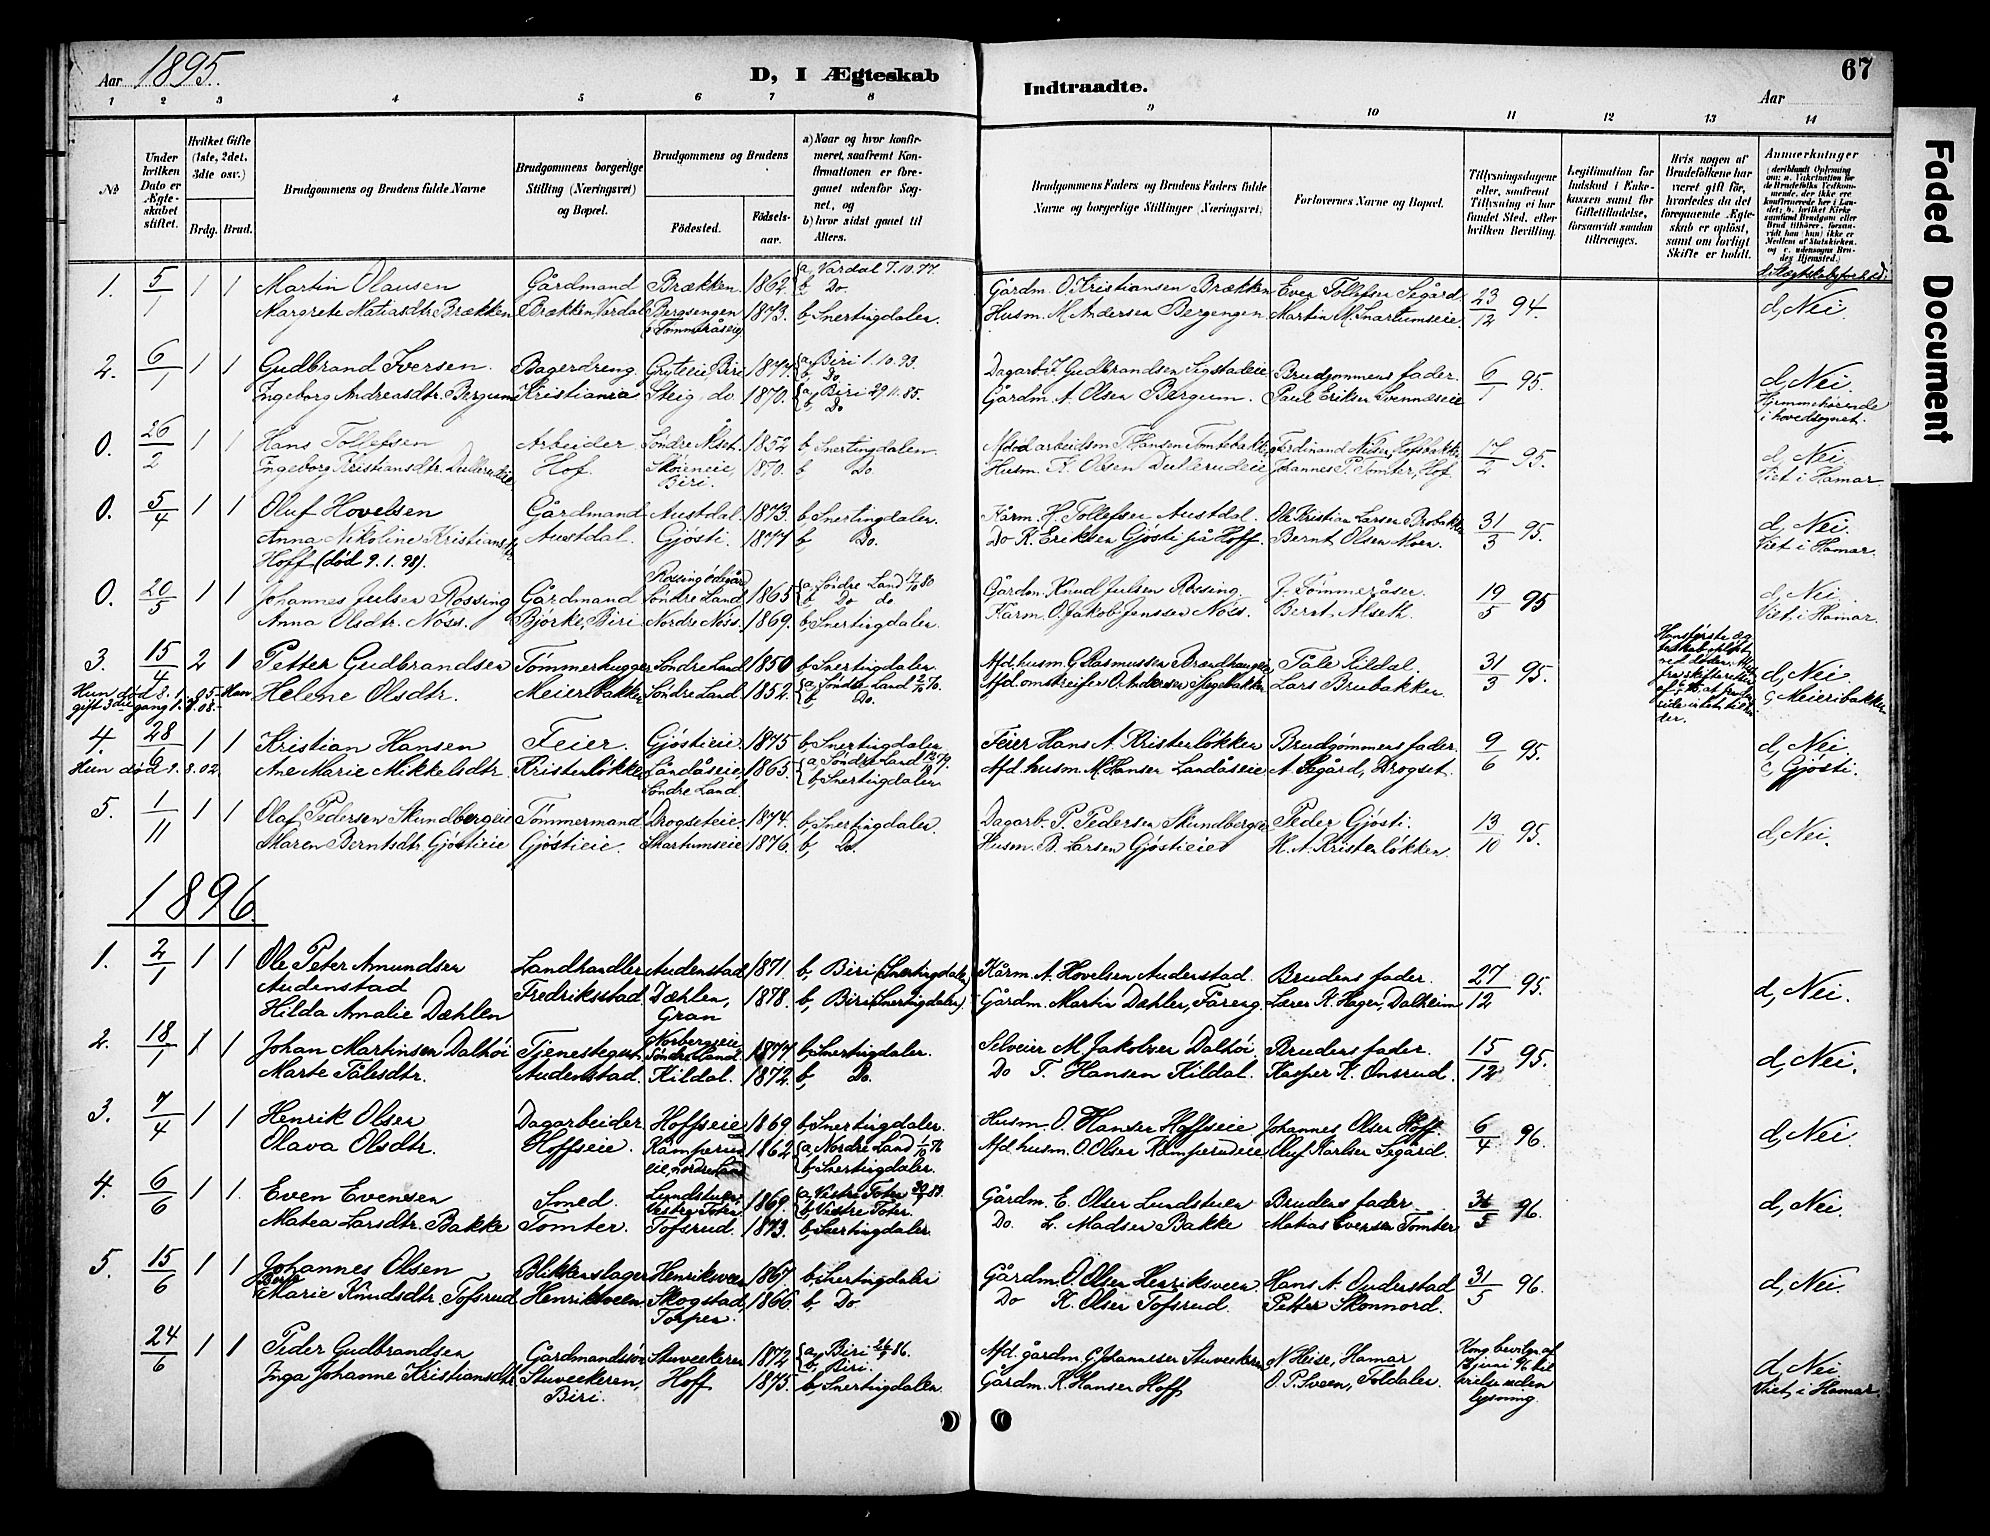 Aar 1895.
D, I Ægteskab
Indtraadte.
67
Aar
1 2 3 4 5 6 7 8 9 10 11 12 13 14
No
Under hvilken Dato er Ægteskabet stiftet.
Hvilket Gifte (1ste, 2det, 3die osv.)
Brdg. Brud.
Brudgommens og Brudens fulde Navne
Brudgommens borgerlige Stilling (Næringsvei) og Bopæl.
Brudgommens og Brudens
Fødested.
Fødselsaar.
a) Naar og hvor konfirmeret, saafremt Konfirmationen er foregaaet udenfor Sognet, og
b) hvor sidst gaaet til Alters.
Brudgommens Faders og Brudens Faders fulde Navne og borgerlige Stillinger (Næringsvei)
Forlovernes Navne og Bopæl.
Tillysningsdagene eller, saafremt Tillysning ei har fundet Sted, efter hvilken Bevilling.
Legitimation for Indskud i Enkekassen samt for Giftetilladelse, forsaavidt saadan tiltrænges.
Hvis nogen af Brudefolkene har været gift før, hvorledes da det foregaaende Ægteskab er opløst, samt om lovligt Skifte er holdt.
Anmerkninger
1. 5/1 1 1 Martin Olausen Gårdmand Brækken 1862 a, Vardal 7.10.77. b, Do. Gårdm. O. Kristiansen Brækken Even Tollefsen Segård 23/12 94. d, Nei.
Margrete Matiasdtr. Brækken Brækken Vardal Bergsengen 1873. b, Snertingdalen. Husm. M. Andersen Bergengen Martin M. Snartumseie
2. 6/1 1 1 Gudbrand Iversen. Bagerdreng. Gryteeie, Biri 1877. a, Biri 1.10.93. b, Do Dagarb. I. Gudbrandsen Sigstadeie Brudgommens fader. 6/1 95. d, Nei.
Ingeborg Andreasdtr. Bergum Kristiania Steig, do 1870. a, Biri 29.11.85. b, Do Gårdm. A. Olsen Bergum. Paul Eriksen Svennæseie Hjemmehørende i hovedsognet.
0. 26/2 1 1 Hans Tollefsen Arbeider Søndre Alset. 1852 b, Snertingdalen. Afdød arbeidsm. T. Hansen Tomtebakke Ferdinand Nilsen, Hofsbakke 17/2 95. d, Nei.
Ingeborg Kristiansdtr. Dullerudeie Hof. Skoieneie, Biri. 1870. b, Do. Husm. K. Olsen Dullerudeie Johannes P. Tomter, Hof. Viet i Hamar.
0. 5/4 1 1 Oluf Hovelsen Gårdmand Austdal. 1873. b, Snertingdalen. Kårm. H. Tollefsen Austdal. Ole Kristian Larsen Brobakken 31/3 95. d, Nei.
Anna Nikoline Kristiansdtr. Austdal. Gjøsti. 1877 b, Do. Do K. Eriksen Gjøsti på Hoff. Bernt Olsen Moen. Viet i Hamar.
Hoff (død 9.1.98).
0. 20/5 1 1 Johannes Julsen Røssing Gårdmand Søndre Land 1865 a, Søndre Land b, Do do Gårdm. Knud Julsen Røssing. J. Tømmeråsen. 19/5 95 d, Nei.
Anna Olsdtr. Nøss. Bjørke, Biri. Nordre Nøss. 1869. b, Snertingdalen. Kårm. O. Jakob Jenssen Nøss. Bernt Alseth. Viet i Hamar.
3. 15/4 2 1 Petter Gudbrandsen Tømmerhugger Søndre Land 1850 b, Snertingdalen. Afd. husm. G. Rasmussen Brændhaugen Tåle Kildal. 31/3 95. d, Nei.
Hun død 8.1.05.
Helene Olsdtr. Meieribakken Søndre Land. 1852. a, Søndre Land b, Do. Afd. omstreifer O. Andersen Lars Brubakken. c, Meieribakken
4. 28/6 1 1 Kristian Hansen Feier. Gjøstieie. 1875 b, Snertingdalen Feier Hans A. Kristenløkken Brudgommens fader. 9/6 95. d, Nei.
Hun død 02. Ane Marie Mikkelsdtr. Kristenløkken Landåseie, Søndre Land. 1863. a, Søndre Land b, Snertingdalen Afd. husm. M. Hansen Landåseie A. Segård, Drogset. c, Gjøsti.
5. 1/11 1 1 Olaf Pedersen Skundbergeie Tømmermand Drogseteie. 1874. b, Snertingdalen. Dagarb. P. Pedersen Skundbergeie Peder Gjøsti. 13/10 95. d, Nei.
Maren Berntsdtr. Gjøstieie Gjøstieie. 1876. b, Do. Husm. B. Larsen Gjøstieie H. A. Kristenløkken.
1896.
1. 2/1 1 1 Ole Peter Amundsen Landhandler Audenstad 1871. b, Biri (Snertingdalen) Kårm. A. Hovelsen Audenstad. Brudens fader. 27/12 95. d, Nei.
Audenstad
Hilda Amalie Dæhlen Fredriksstad Dæhlen, Gran 1878. b, Biri (Snertingdalen). Gårdm. Martin Dæhlen, Fåreng. Lærer K. Hagen, Dalheim
2. 18/1 1 1 Johan Martinsen Dalhøi Tjenestegut Norbergseie Søndre Land. 1874 b, Snertingdalen. Selveier M. Jakobsen Dalhøi Brudens fader. 15/12 95. d, Nei.
Marte Tålesdtr. Audenstad. Kildal. 1872. b, Do. Do T. Hansen Kildal. Kasper K. Onsrud.
3. 7/4 1 1 Henrik Olsen Dagarbeider Hoffseie 1869 b, Snertingdalen. Husm. O. Hansen Hoffseie Johannes Olsen Hoff. 6/4 96. d, Nei.
Olava Olsdtr. Hoffseie. Kamperudeie, nordre Land 1862 a, Nordre Land b, Snertingdalen. Afd. husm. O. Olsen Kamperudeie Oluf Karlsen Segård.
4. 6/6 1 1. Even Evensen Smed. Lundstuen, Vestre Toten 1869. a, Vestre Toten b, Vestre Toten. Gårdm. E. Olsen Lundstuen Brudens fader 96. d, Nei.
Matea Larsdtr. Bakke Tomter. Tofsrud. 1873. b, Snertingdalen. Do. L. Madsen Bakke Matias Evensen Tomter
5. 15/6 1 1 Johannes Olsen Blikkenslager Henriksveen 1867. b, Snertingdalen Gårdm. O. Olsen Henriksveen. Hans A. Ouderstad 31/5 96. d, Nei.
Berte Marie Knudsdtr. Tofsrud Henriksveen Skogstad, Torpen. 1866. b, Do Do K. Olsen Tofsrud. Petter Skonnord.
24/6 1 1 Peder Gudbrandsen Gårdmandssøn Stuveekeren 1872 a, Biri b, Biri. Afd. gårdm. G. Johannesen Stuveekeren N. Heise, Hamar Kong. bevilgn. af juni 96 til vielse uden lysning. d, Nei
Inga Johanne Kristiansdtr. Stuveekeren, Biri. Hoff 1875. b, Snertingdalen. Gårdm. K. Hansen Hoff O. P. Sveen, Foldalen. Viet i Hamar.
Faded Document